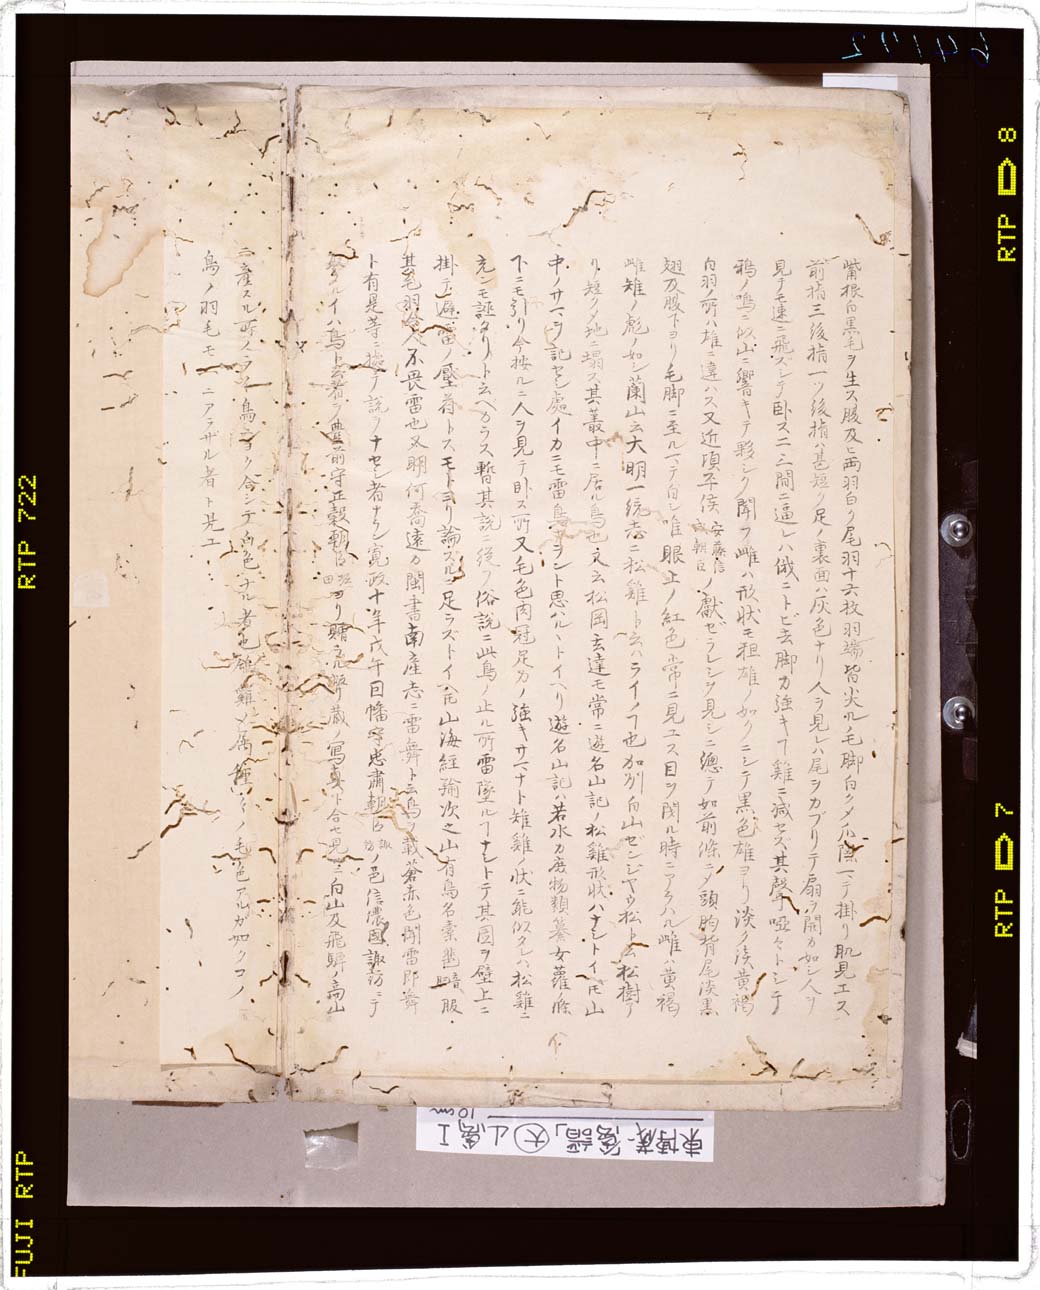 觜根白黒毛ヲ生ス腹及ヒ両羽白ク尾羽十六枚羽端皆尖ル毛脚白クメ爪際マテ掛リ肌見エス
前指三後指一ツ後指ハ甚短ク足ノ裏面ハ灰色ナリ人ヲ見レハ尾ヲカブリテ扇ヲ開カ如シ人ヲ
見テモ速ニ飛ズシテ臥ス二三間ニ逼レハ俄ニトビ去脚力強キヿ雞ニ減セス其聲啞々トシテ
鴉ノ鳴ニ似山ニ響キテ夥シク聞フ雌ハ形状モ粗雄ノ如クニシテ黒色雄ヨリ淡ク淡黄褐
白羽ノ所ハ雄ニ違ハス又近頃平侯安藤信成朝臣ノ獻ゼラレシヲ見シニ總テ如前條ニメ頭胸背尾淡黒
翅及腹下ヨリ毛脚ニ至ルマテ白シ唯眼上ノ紅色常ニ見エス目ヲ閉ル時ニアラハル雌ハ黄褐
雌雉ノ彪ノ如シ蘭山云大明一統志ニ松雞ト云ハライノヿ也加列白山ゼンジヤウ松ト云松樹ア
リ短クメ地ニ塌ス其叢中ニ居ル鳥也又云松岡玄達モ常ニ遊名山記ノ松雞形状ハナシトイヘ𪜈山
中ノサマヲ記セシ處イカニモ雷鳥ナラント思ハルヽトイヘリ遊名山記ハ若水カ庶物類纂女蘿ノ條
下ニモ引リ今按ルニ人ヲ見テ卧ス所又毛色肉冠足力ノ強キサマナト雉雞ノ状ニ能似タレハ松雞ニ
充ンモ誣タリト云ベカラス暫其説ニ從フ俗説ニ此鳥ノ止ル所雷墜ルヿナシトテ其圖ヲ壁上ニ
掛テ避雷ノ壓符トスモトヨリ論ズルニ足ラズトイヘ𪜈山海經輪次之山有鳥名橐𩇯服
其毛羽令人不畏雷也又明何喬遠カ閩書南産志ニ雷舞ト云鳥ヲ載蒼赤色聞雷即舞
ト有是等ニ據テ説ヲナセシ者ナラン寛政十年戊午因幡守忠肅朝臣諏訪ノ邑信濃國諏訪ニテ
ライ鳥ト云者ヲ豊前守正穀朝臣堀田ヨリ贈ラル
ニ産スル所ノライ鳥
鳥ノ羽毛モ ニアラザル者ト見エ
東博蔵「鳥譜」大 山鳥I
10cm
64172
RTP 8
RTP 7
RTP 722
FUJI RTP